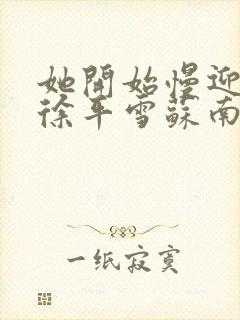 她開始慢迎
徐平雪蘇南
一纸寂寞